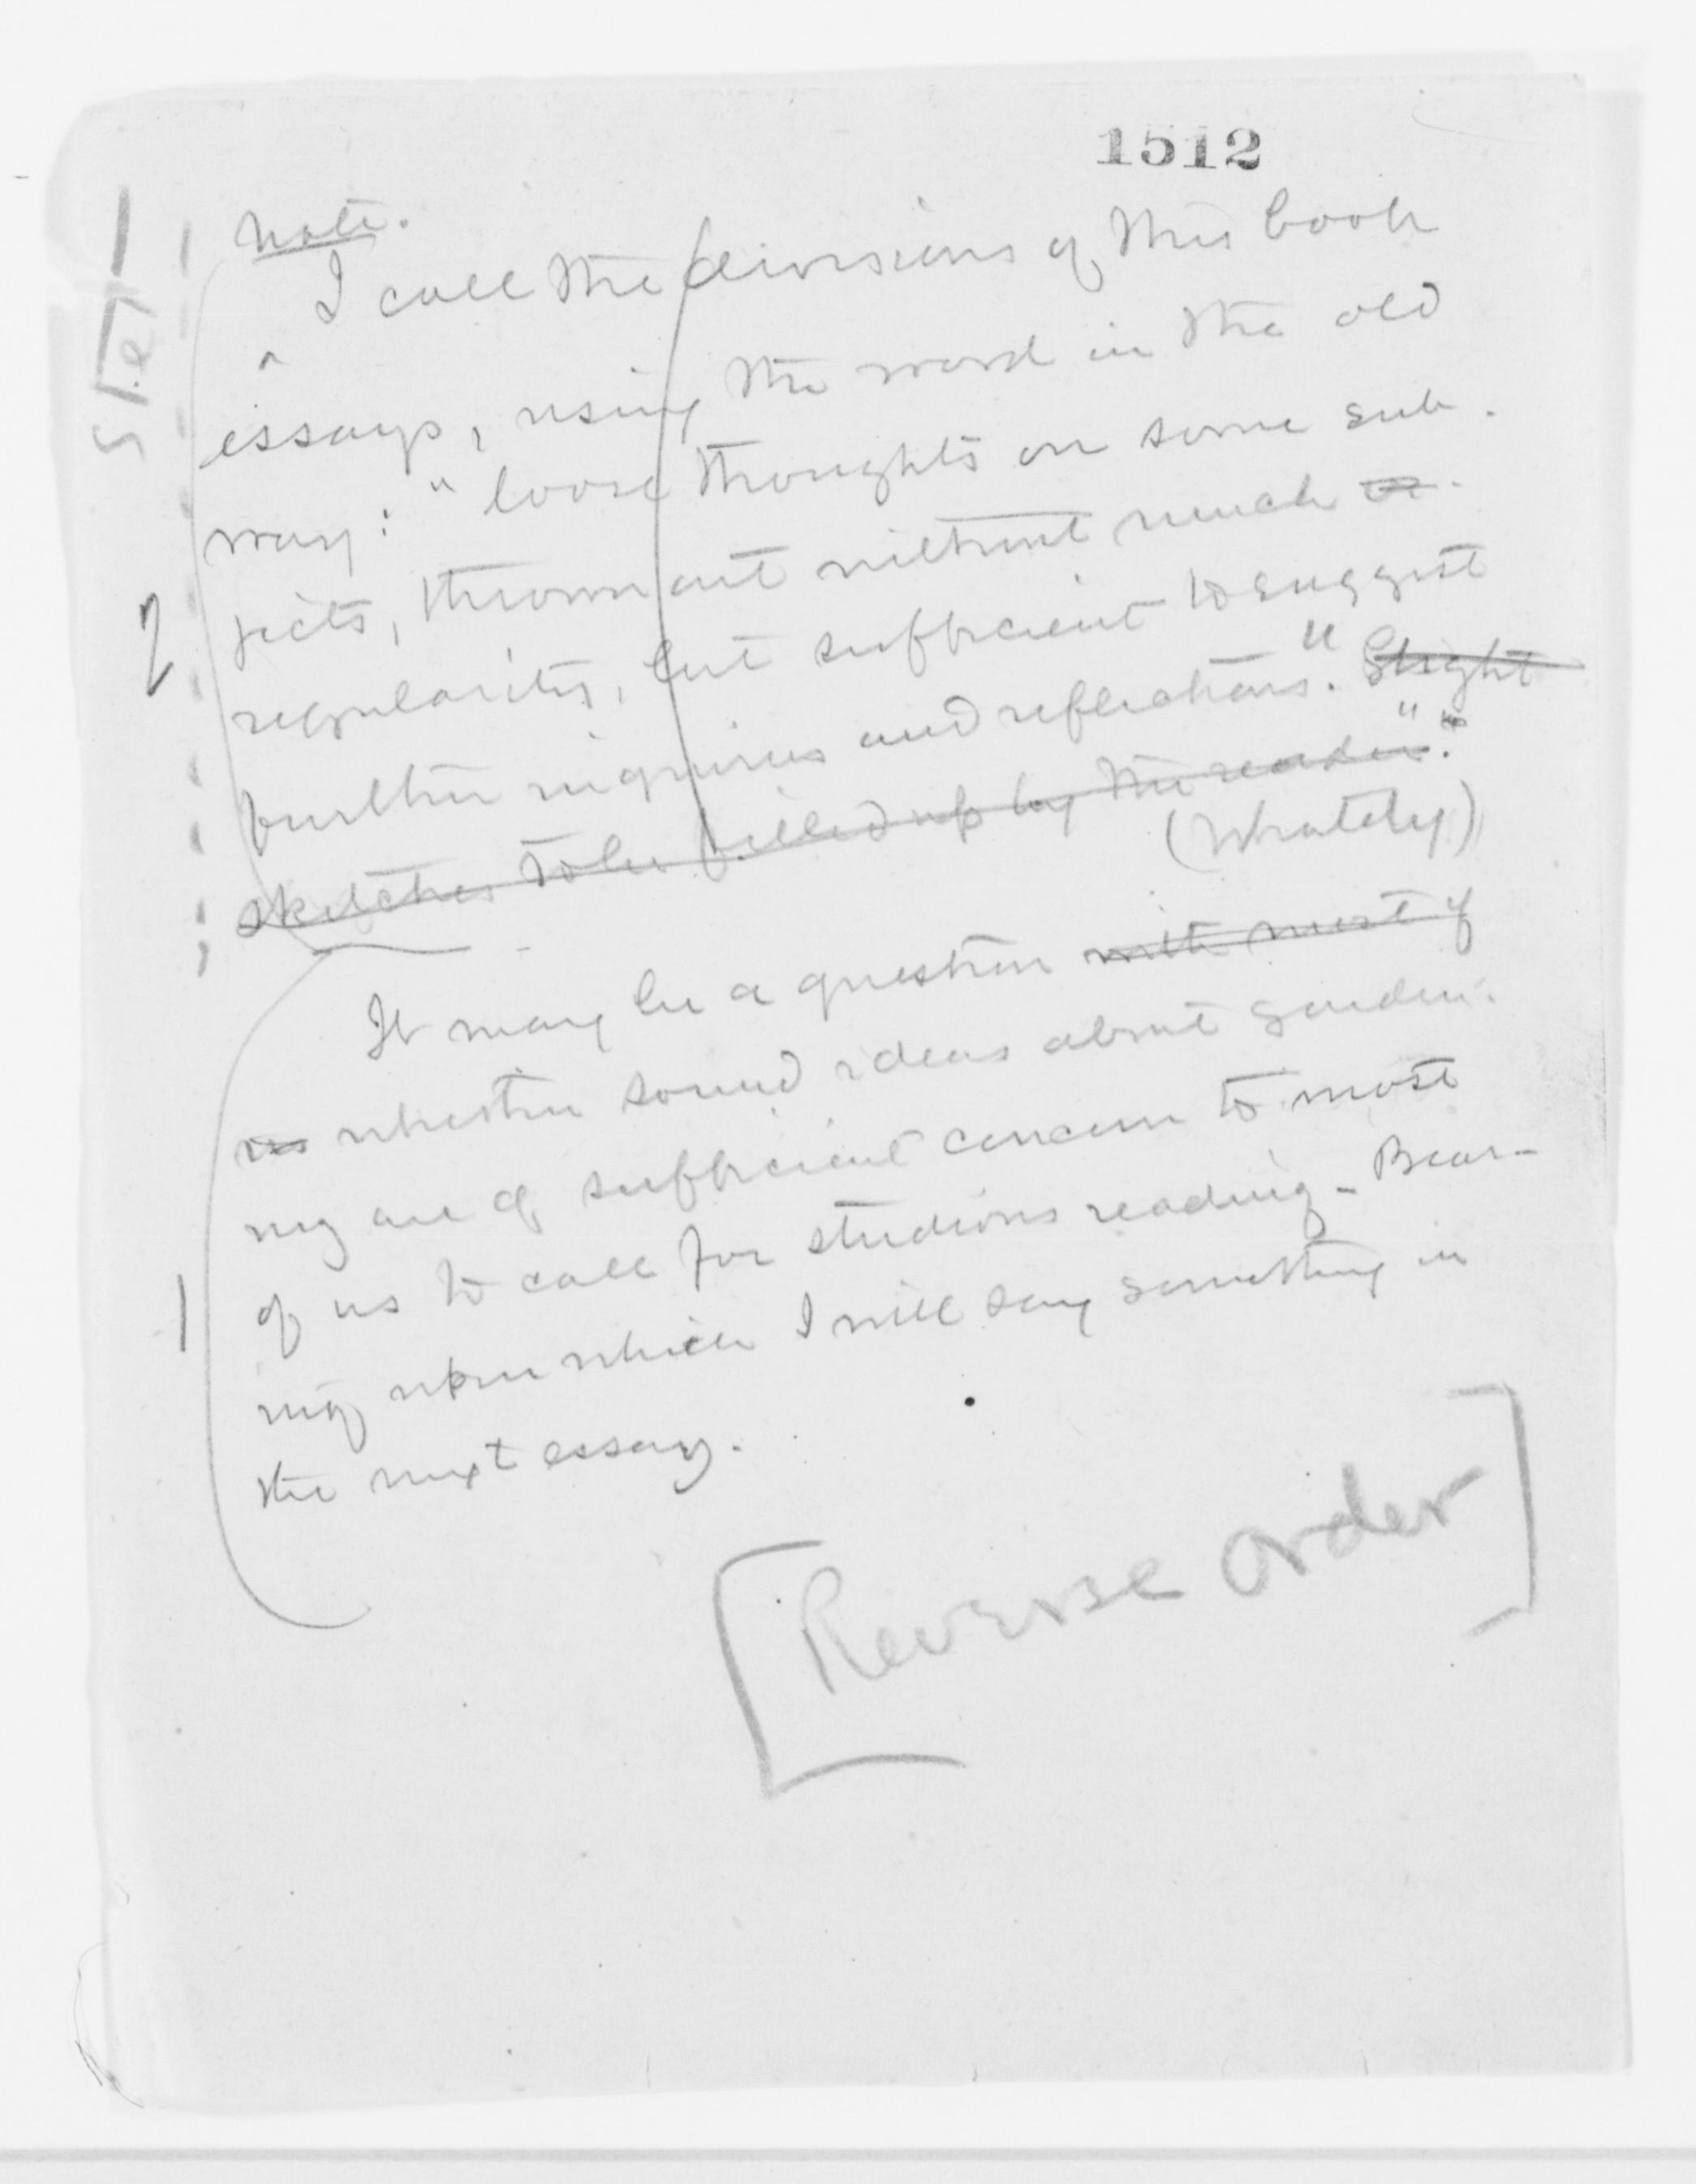 1512
Note.
I call the divisions of this book
essays, using the word in the old
way: "loose thoughts on some sub-
jects, thrown out without much or-
regularity, but sufficient to suggest
further inquiries and reflections." Slight
sketches to be filled up by the reader."
(Whately)
2
It may be a question with most of
us whether sound ideas about garden-
ing are of sufficient concern to most
of us to call for studious reading. Bear-
ing upon which I will say something in
the next essay.
1
[Reverse order]